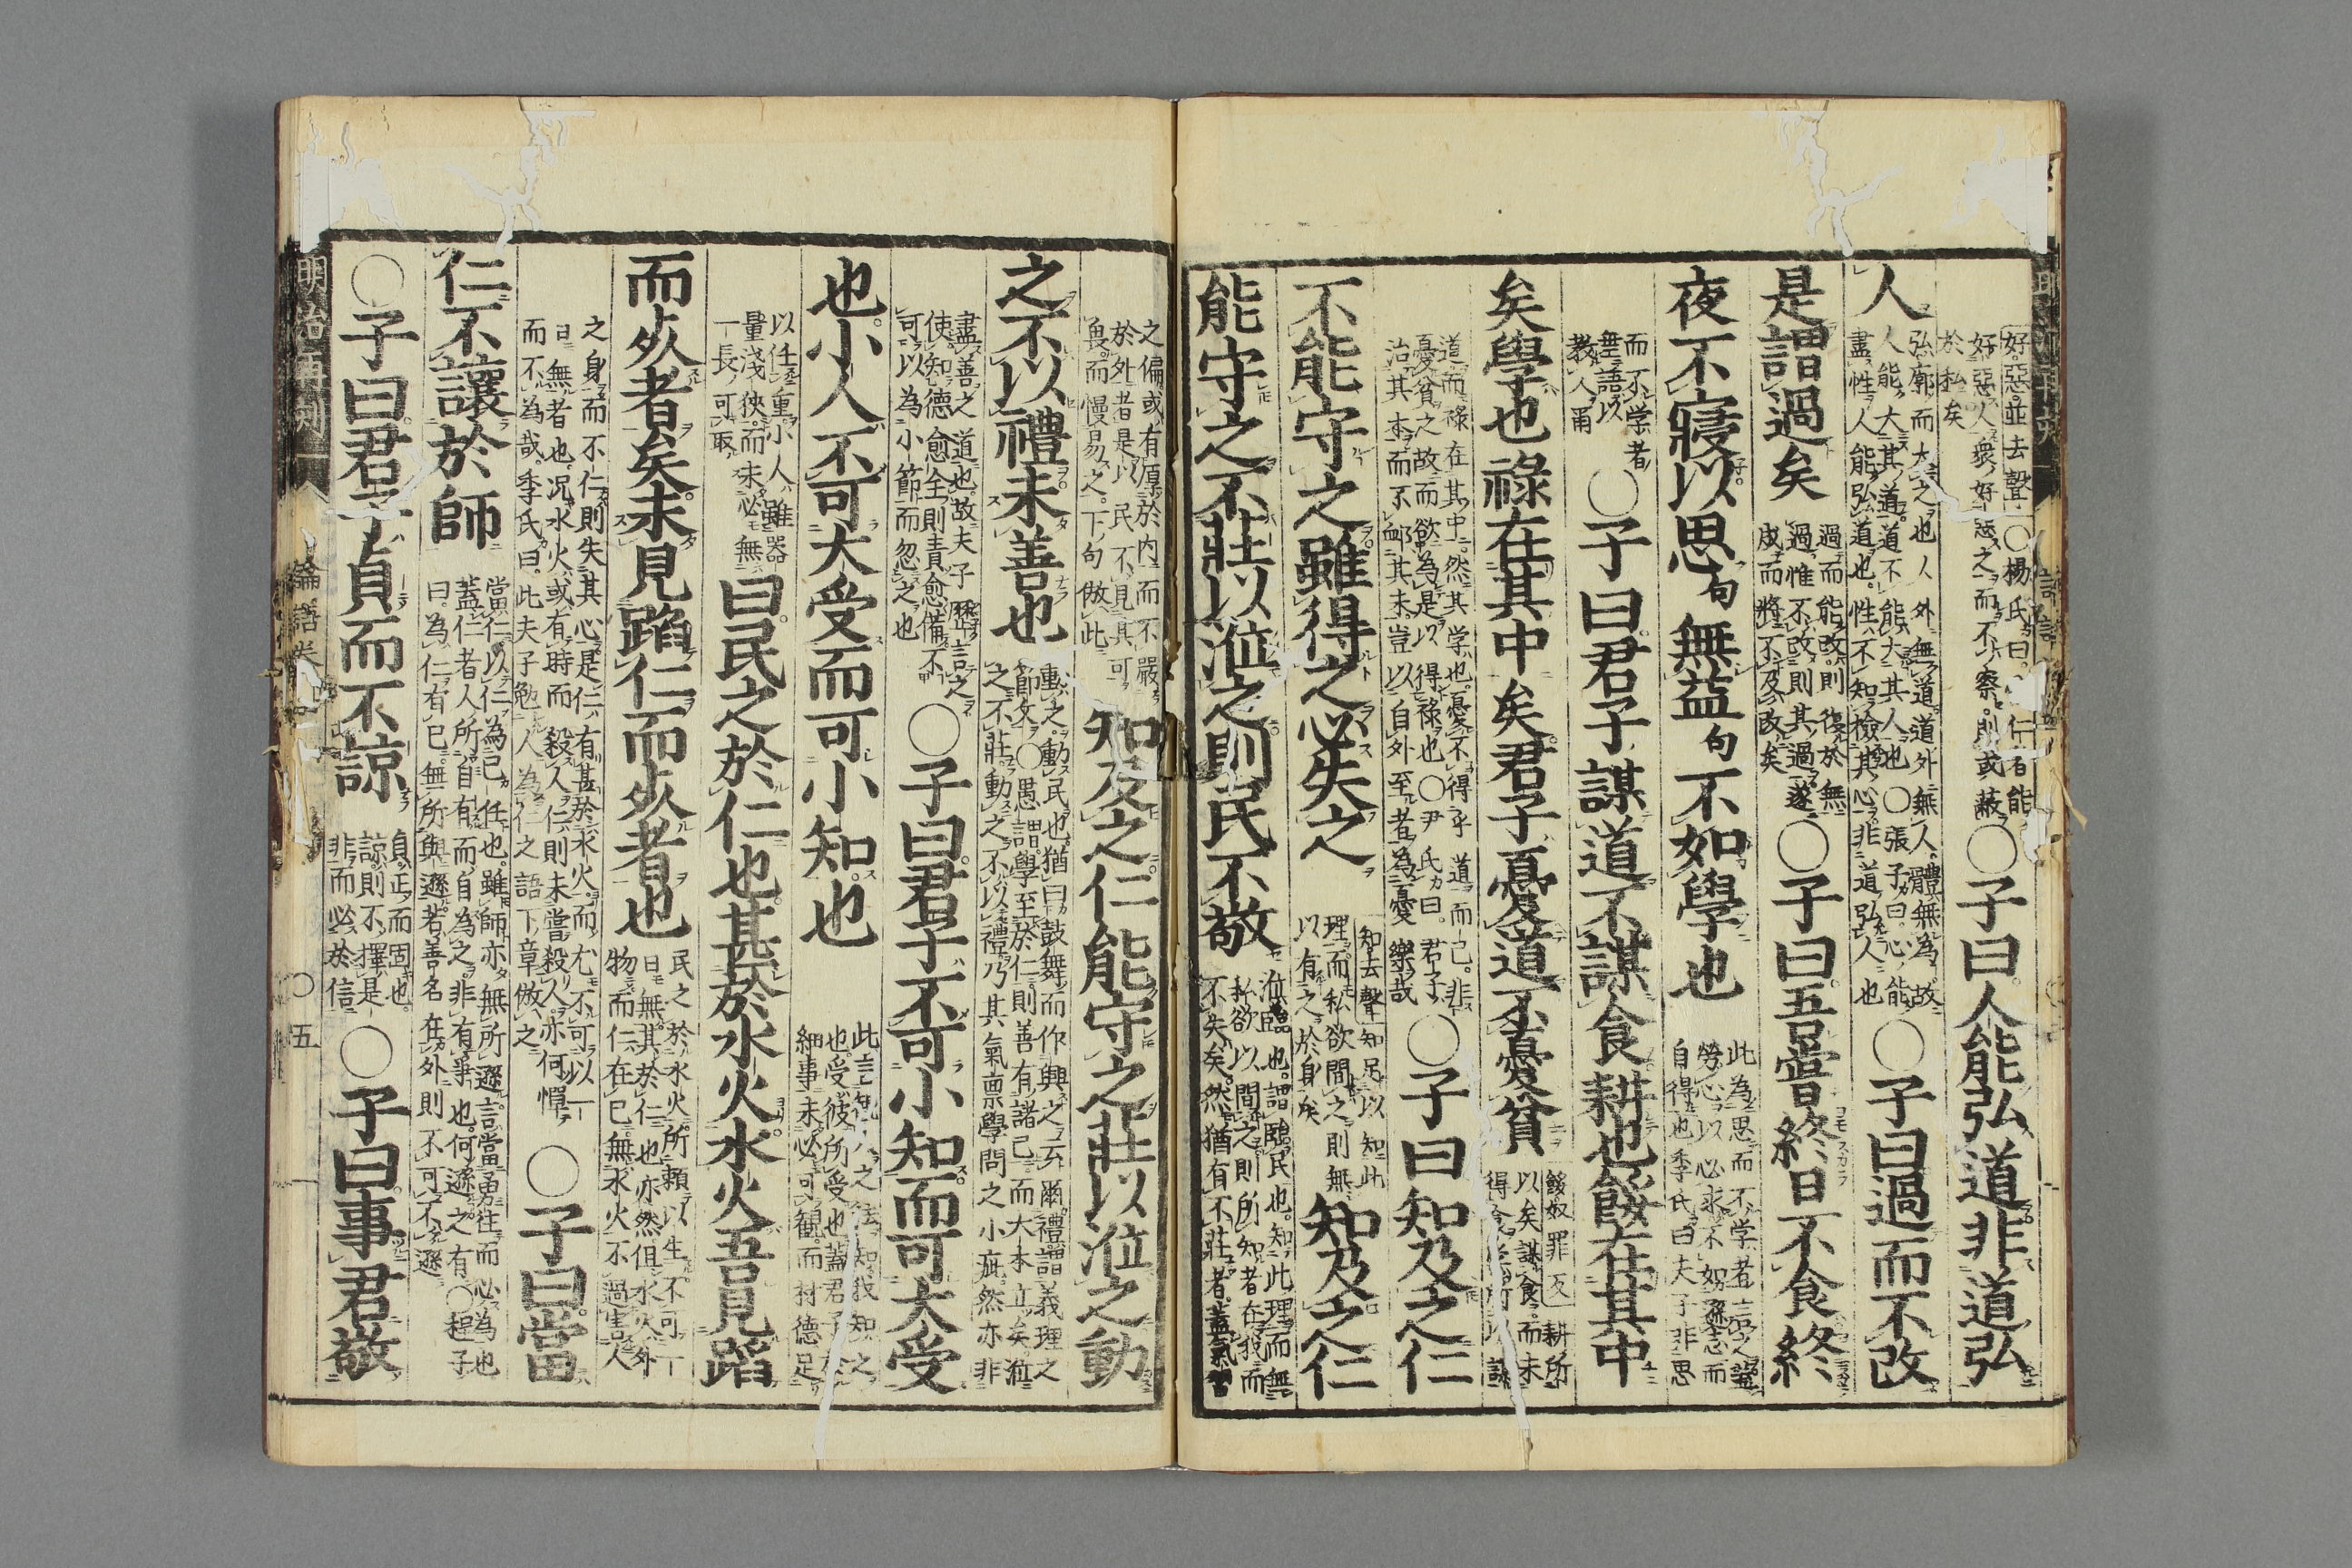 好惡並去聲○楊氏曰仁者能
好惡人衆好惡之而不察則或蔽
於私矣
○子曰人能弘道非道弘
人
弘廓而大之也人外無道道外無人體無為故
人能大其道道不能大其人也○張子曰心能
盡性人能弘道也性不知檢其心非道弘人也
○子曰過而不改
是謂過矣
過而能改則復於無
過惟不改則其過遂
成而將不及改矣
○子曰吾嘗終日不食終
夜不寢以思句無益句不如學也
此為思而不学者言之蓋
勞心以必求不如遜志而
自得也李氏曰夫子非思
而不学者
垂語以
教人爾
○子曰君子謀道不謀食耕也餒在其中
矣學也祿在其中矣君子憂道不憂貧
餒奴罪反 耕所
以矣謀食而未
得食
道而祿在其中然其学也憂不得乎道而已非
憂貧之故而欲為是以得祿也○尹氏曰君子
治其本而不卹其末豈以自外至者為憂樂哉
○子曰知及之仁
不能守之雖得之必失之
知去聲 知足以知此
理而私欲間之則無
以有之於身矣
知及之仁
能守之不莊以涖之則民不敬
涖臨也謂臨民也知此理而無
私欲以間之則所知者在我而
不失矣然猶有不莊者蓋氣習
之偏或有厚於内而不嚴
於外者是以民不見其可
畏而慢易之下句倣此
知及之仁能守之莊以涖之動
之不以禮未善也
動之動民也猶曰鼓舞而作興之云爾禮謂義理之
節文○愚謂學至於仁則善有諸己而大本立矣涖
之不莊動之不以禮乃其氣稟學問之小疵然亦非
盡善之道也故夫子歷言之
使知德愈全則責愈備不
可以為小節而忽之也
○子曰君子不可小知而可大受
也小人不可大受而可小知也
此言之法知我知之
也受彼所受也蓋君子於
細事未必可観而材德足
以任重小人雖器
量淺狹而未必無
一長可取
曰民之於仁也甚於水火水火吾見蹈
而死者矣未見蹈仁而死者也
民之於水火所頼以生不可一
日無其於仁也亦然但水火外
物而仁在己無水火不過害人
之身而不仁則失其心是仁有甚於水火而尤不可以一
日無者也况水火或有時而殺人仁則未嘗殺人亦何憚
而不為哉李氏曰此夫子勉人為仁之語下章倣之
○子曰當
仁不讓於師
當仁以仁為己任也雖師亦無所遜言當勇往而必為也
蓋仁者人所自有而自為之非有爭也何遜之有○程子
曰為仁有己無所與遜若善名在外則不可不遜
○子曰君子貞而不諒
貞正而固也
諒則不擇是
非而必於信
○子曰事君敬
明治再刻
論語
○五